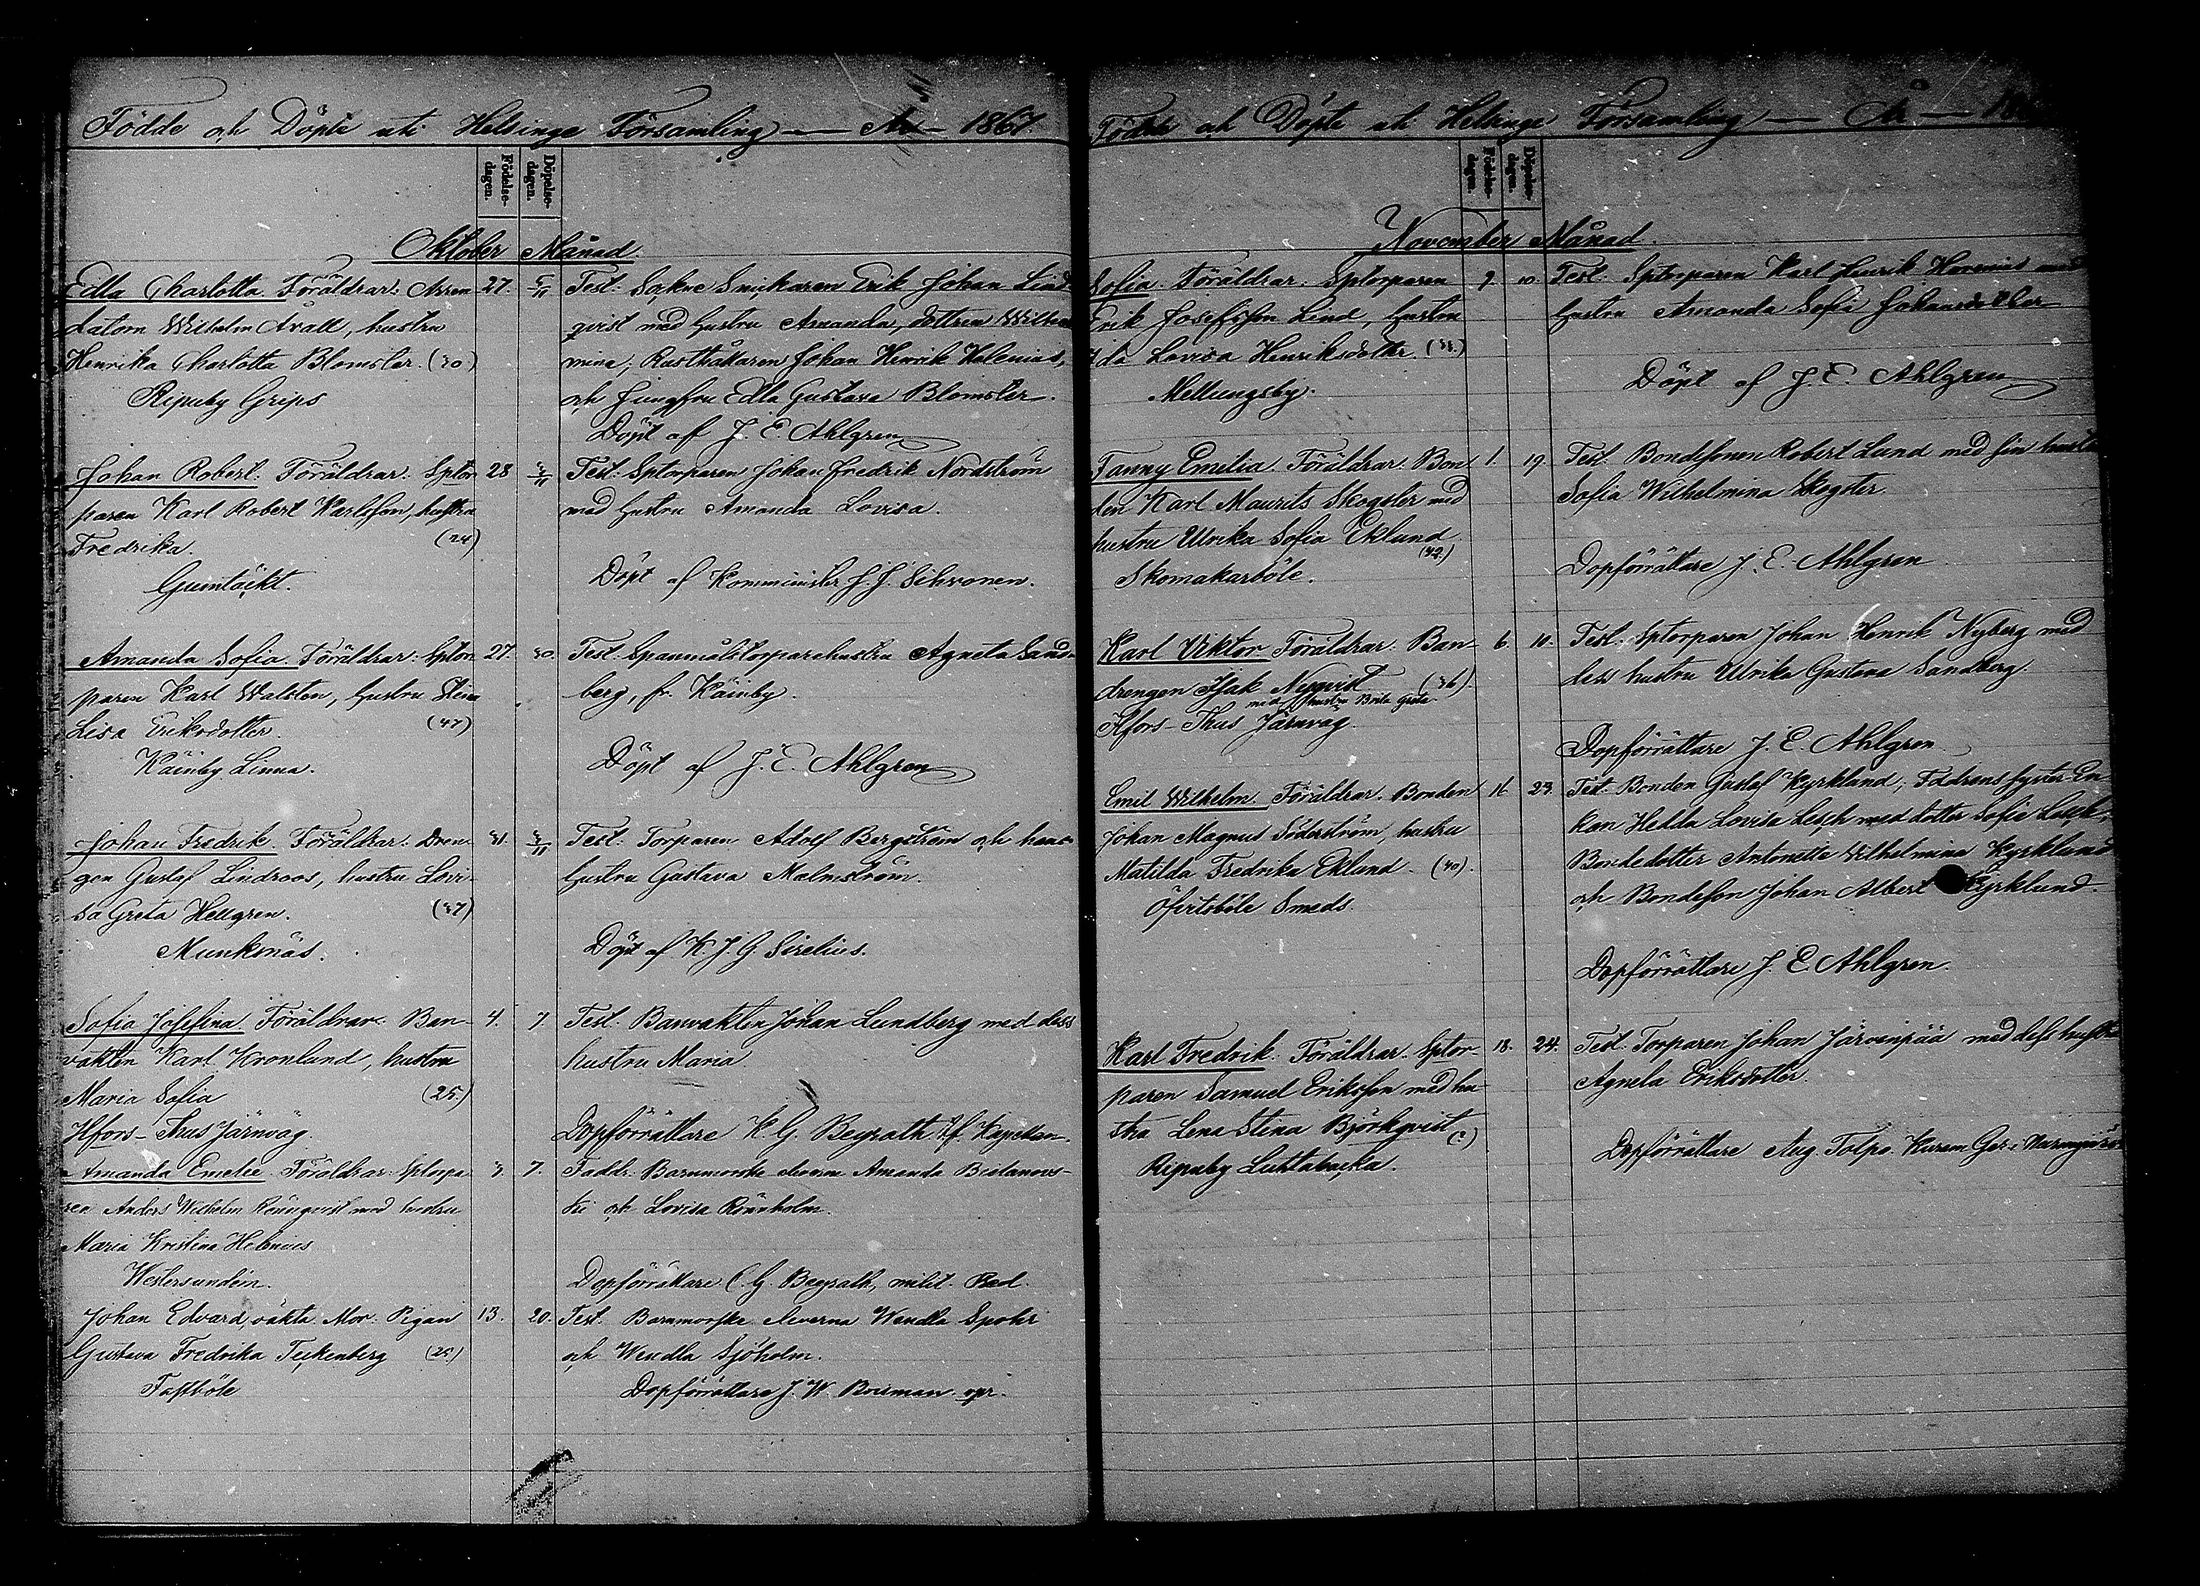 Födde och Döpte uti Helsinge Församling — År — 1867
Födelse-dagen.
Döpelse-dagen.
Oktober Månad
Edla Charlotta. Föräldrar: Arren- 27. 5/11
datorn Wilhelm Avall, hustru
Henrika Charlotta Blomster. (30)
Ripuby Grips
Test: Sockne Snickaren Erik Johan Lind-
qvist med hustru Amanda, dottren Wilhel
mina, Rusthållaren Johan Henrik Helenius,
och Jungfru Edla Gustava Blomster.
Döpt af J. E. Ahlgren
Johan Robert. Föräldrar: Sptor 28 3/11
paren Karl Robert Karlsson, hustru
Fredrika. (24)
Gumtäckt.
Test: Sptorparen Johan Fredrik Nordström
med hustru Amanda Lovisa.
Döpt af Komminister J. J. Sihvonen.
Amanda Sofia. Föräldrar: Sptor 27 30.
paren Karl Walsten, hustru Stina
Lisa Eriksdotter. (47)
Käinby Linna.
Test: Spanmålstorparehustru Agneta Sand-
berg, fr. Käinby.
Döpt af J. E. Ahlgren
Johan Fredrik. Föräldrar: Dren- 31. 3/11
gen Gustaf Lindroos, hustru Lovi-
sa Greta Hellgren. (37)
Munksnäs.
Test: Torparen Adolf Bergström och hans
hustru Gustava Malmström.
Döpt af K. J. G. Sirelius.
Sofia Josefina. Föräldrar: Ban- 4. 7.
vakten Karl Kronlund, hustru
Maria Sofia (25)
Hfors-Thus Järnväg.
Test: Banvakten Johan Lundberg med dess
hustru Maria
Dopförrättare K. G. Beyrath Kapellan.
Amanda Emelie. Föräldrar: Sptorpa 3. 7.
ren Anders Wilhelm Rönnqvist med hustru
Maria Kristina Helenius
Westersundom.
Faddr: Barnmorske eleverna Amanda
ki och Lovisa Rönnholm.
Dopförrättare C. G. Beyrath, milit. Pred.
Johan Edvard, oäkta. Mor: Pigan 13. 20.
Gustava Fredrika Teckenberg (25)
Fastböle
Test: Barnmorske eleverna Wendla Spohr
och Wendla Sjöholm.
Dopförrättare J. W. Boisman
Födde och Döpte uti Helsinge Församling — År —
Födelse-dagen.
Döpelse-dagen.
November Månad.
Sofia. Föräldrar: Sptorparen 9. 10.
Erik Josefsson Lind, hustru
Lovisa Henriksdotter.
Mellungsby.
Test: Sptorparen Karl Henrik Horenius med
hustru Amanda Sofia Johansdotter
Döpt af J. E. Ahlgren
Fanny Emelia. Föräldrar: Bon 1. 19.
den Karl Maurits Skogster med
hustru Ulrika Sofia Eklund.
(42)
Skomakarböle.
Test: Bondesonen Robert Lund med sin hustru
Sofia Wilhelmina Skogster
Dopförrättare J. E. Ahlgren
Karl Viktor. Föräldrar: Ban- 6. 10.
drengen Isak Nyqvist (36).
med hustru Brita Greta.
Hfors-Thus Järnväg.
Test: Sptorparen Johan Henrik Nyberg med
dess hustru Ulrika Gustava Sandberg.
Dopförrättare J. E. Ahlgren
Emil Wilhelm. Föräldrar: Bonden 16 23.
Johan Magnus Söderström, hustru
Matilda Fredrika Eklund. (40).
Öfvitsböle Smeds.
Test: Bonden Gustaf Kyrklund, Fadrens syster En-
kan Hedda Lovisa Lesch med dotter Sofia
Bondedotter Antonette Wilhelmina Kyrklund
och Bondeson Johan Albert Kyrklund.
Dopförrättare J. E. Ahlgren.
Karl Fredrik. Föräldrar: Sptor- 18. 24.
paren Samuel Eriksson med hu-
stru Lena Stina Björkqvist (?)
Ripuby Luhtabacka.
Test: Torparen Johan Järvenpää med dess hustru
Agneta Eriksdotter.
Dopförrättare Aug. Tolpo